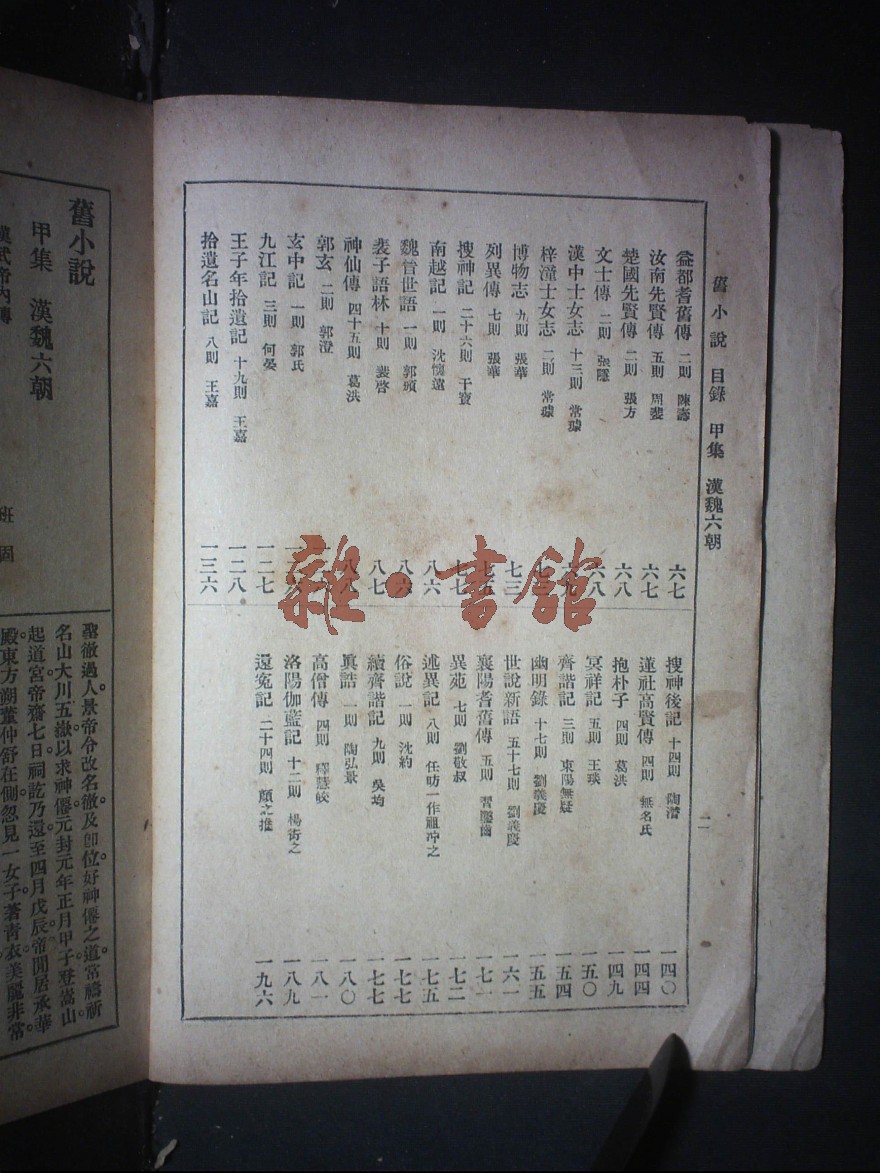 舊小說 目錄 甲集 漢魏六朝
二
益都耆舊傳 二則 陳壽 六七
汝南先賢傳 五則 周斐 六七
楚國先賢傳 二則 張方 六八
文士傳 二則 張隱 六八
漢中士女志 十三則 常璩
梓潼士女志 二則 常璩
博物志 九則 張華 七三
列異傳 七則 張華
搜神記 二十六則 干寶
南越記 一則 沈懷遠 八六
魏晉世語 一則 郭頒 八六
裴子語林 十則 裴啓 八七
神仙傳 四十五則 葛洪 八八
郭玄 二則 郭澄
玄中記 一則 郭氏
九江記 三則 何晏 一二七
王子年拾遺記 十九則 王嘉 一二八
拾遺名山記 八則 王嘉 一三六
搜神後記 十四則 陶潛 一四〇
蓮社高賢傳 四則 無名氏 一四四
抱朴子 四則 葛洪 一四九
冥祥記 五則 王琰 一五〇
齊諧記 三則 東陽無疑 一五四
幽明錄 十七則 劉義慶 一五五
世說新語 五十七則 劉義慶 一六一
襄陽耆舊傳 五則 習鑿齒 一七一
異苑 七則 劉敬叔 一七二
述異記 八則 任昉一作祖冲之 一七五
俗說 一則 沈約 一七七
續齊諧記 九則 吳均 一七七
眞誥 一則 陶弘景 一八〇
高僧傳 四則 釋慧皎 一八一
洛陽伽藍記 十二則 楊衒之 一八九
還寃記 二十四則 顏之推 一九六
雜·書館
舊小說
甲集 漢魏六朝
漢武帝內傳 班固
聖徹過人。景帝令改名徹。及卽位。好神僊之道。常禱祈
名山大川五嶽。以求神僊。元封元年正月甲子。登嵩山。
起道宮。帝齋七日。祠訖乃還。至四月戊辰。帝閒居承華
殿。東方朔董仲舒在側。忽見一女子。著青衣。美麗非常。